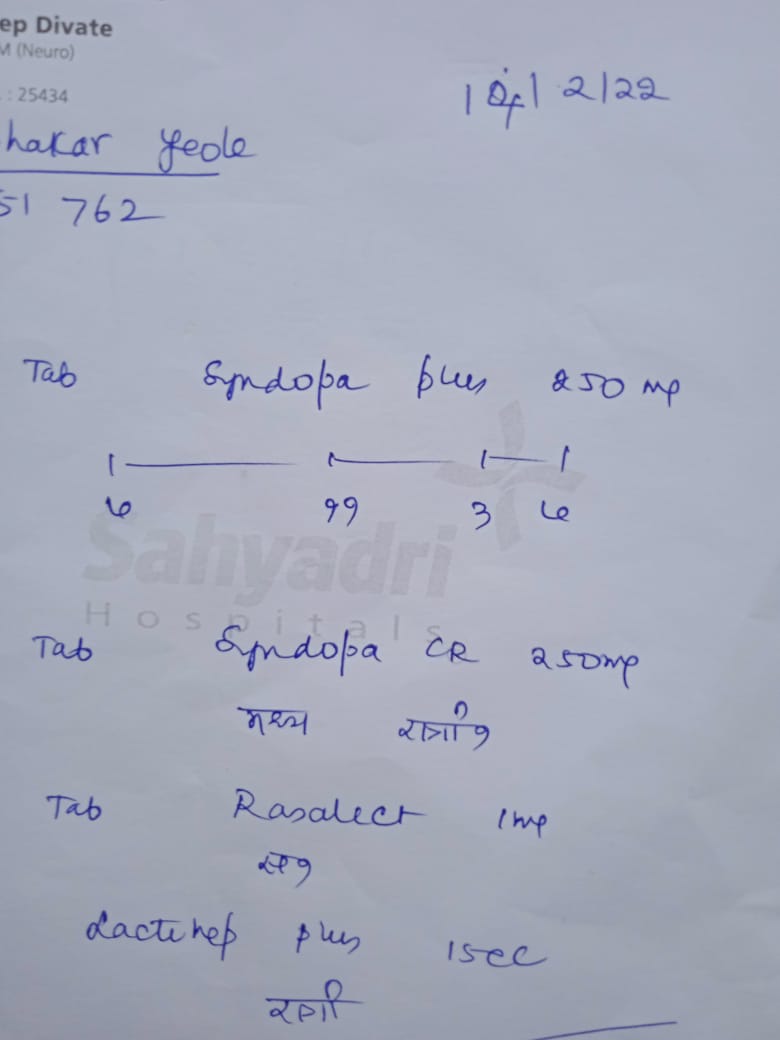 ep Divate
M (Neuro)
: 25434
2/22
hakar Yeole
51 762
Tab Syndopa plus 250 mg
६ ११ 3 ६
Sahyadri
Hospitals
Tab Syndopa CR 250mg
मध्य रात्री १
Tab Rasalect 1mg
Lactihep plus 15cc
रात्री